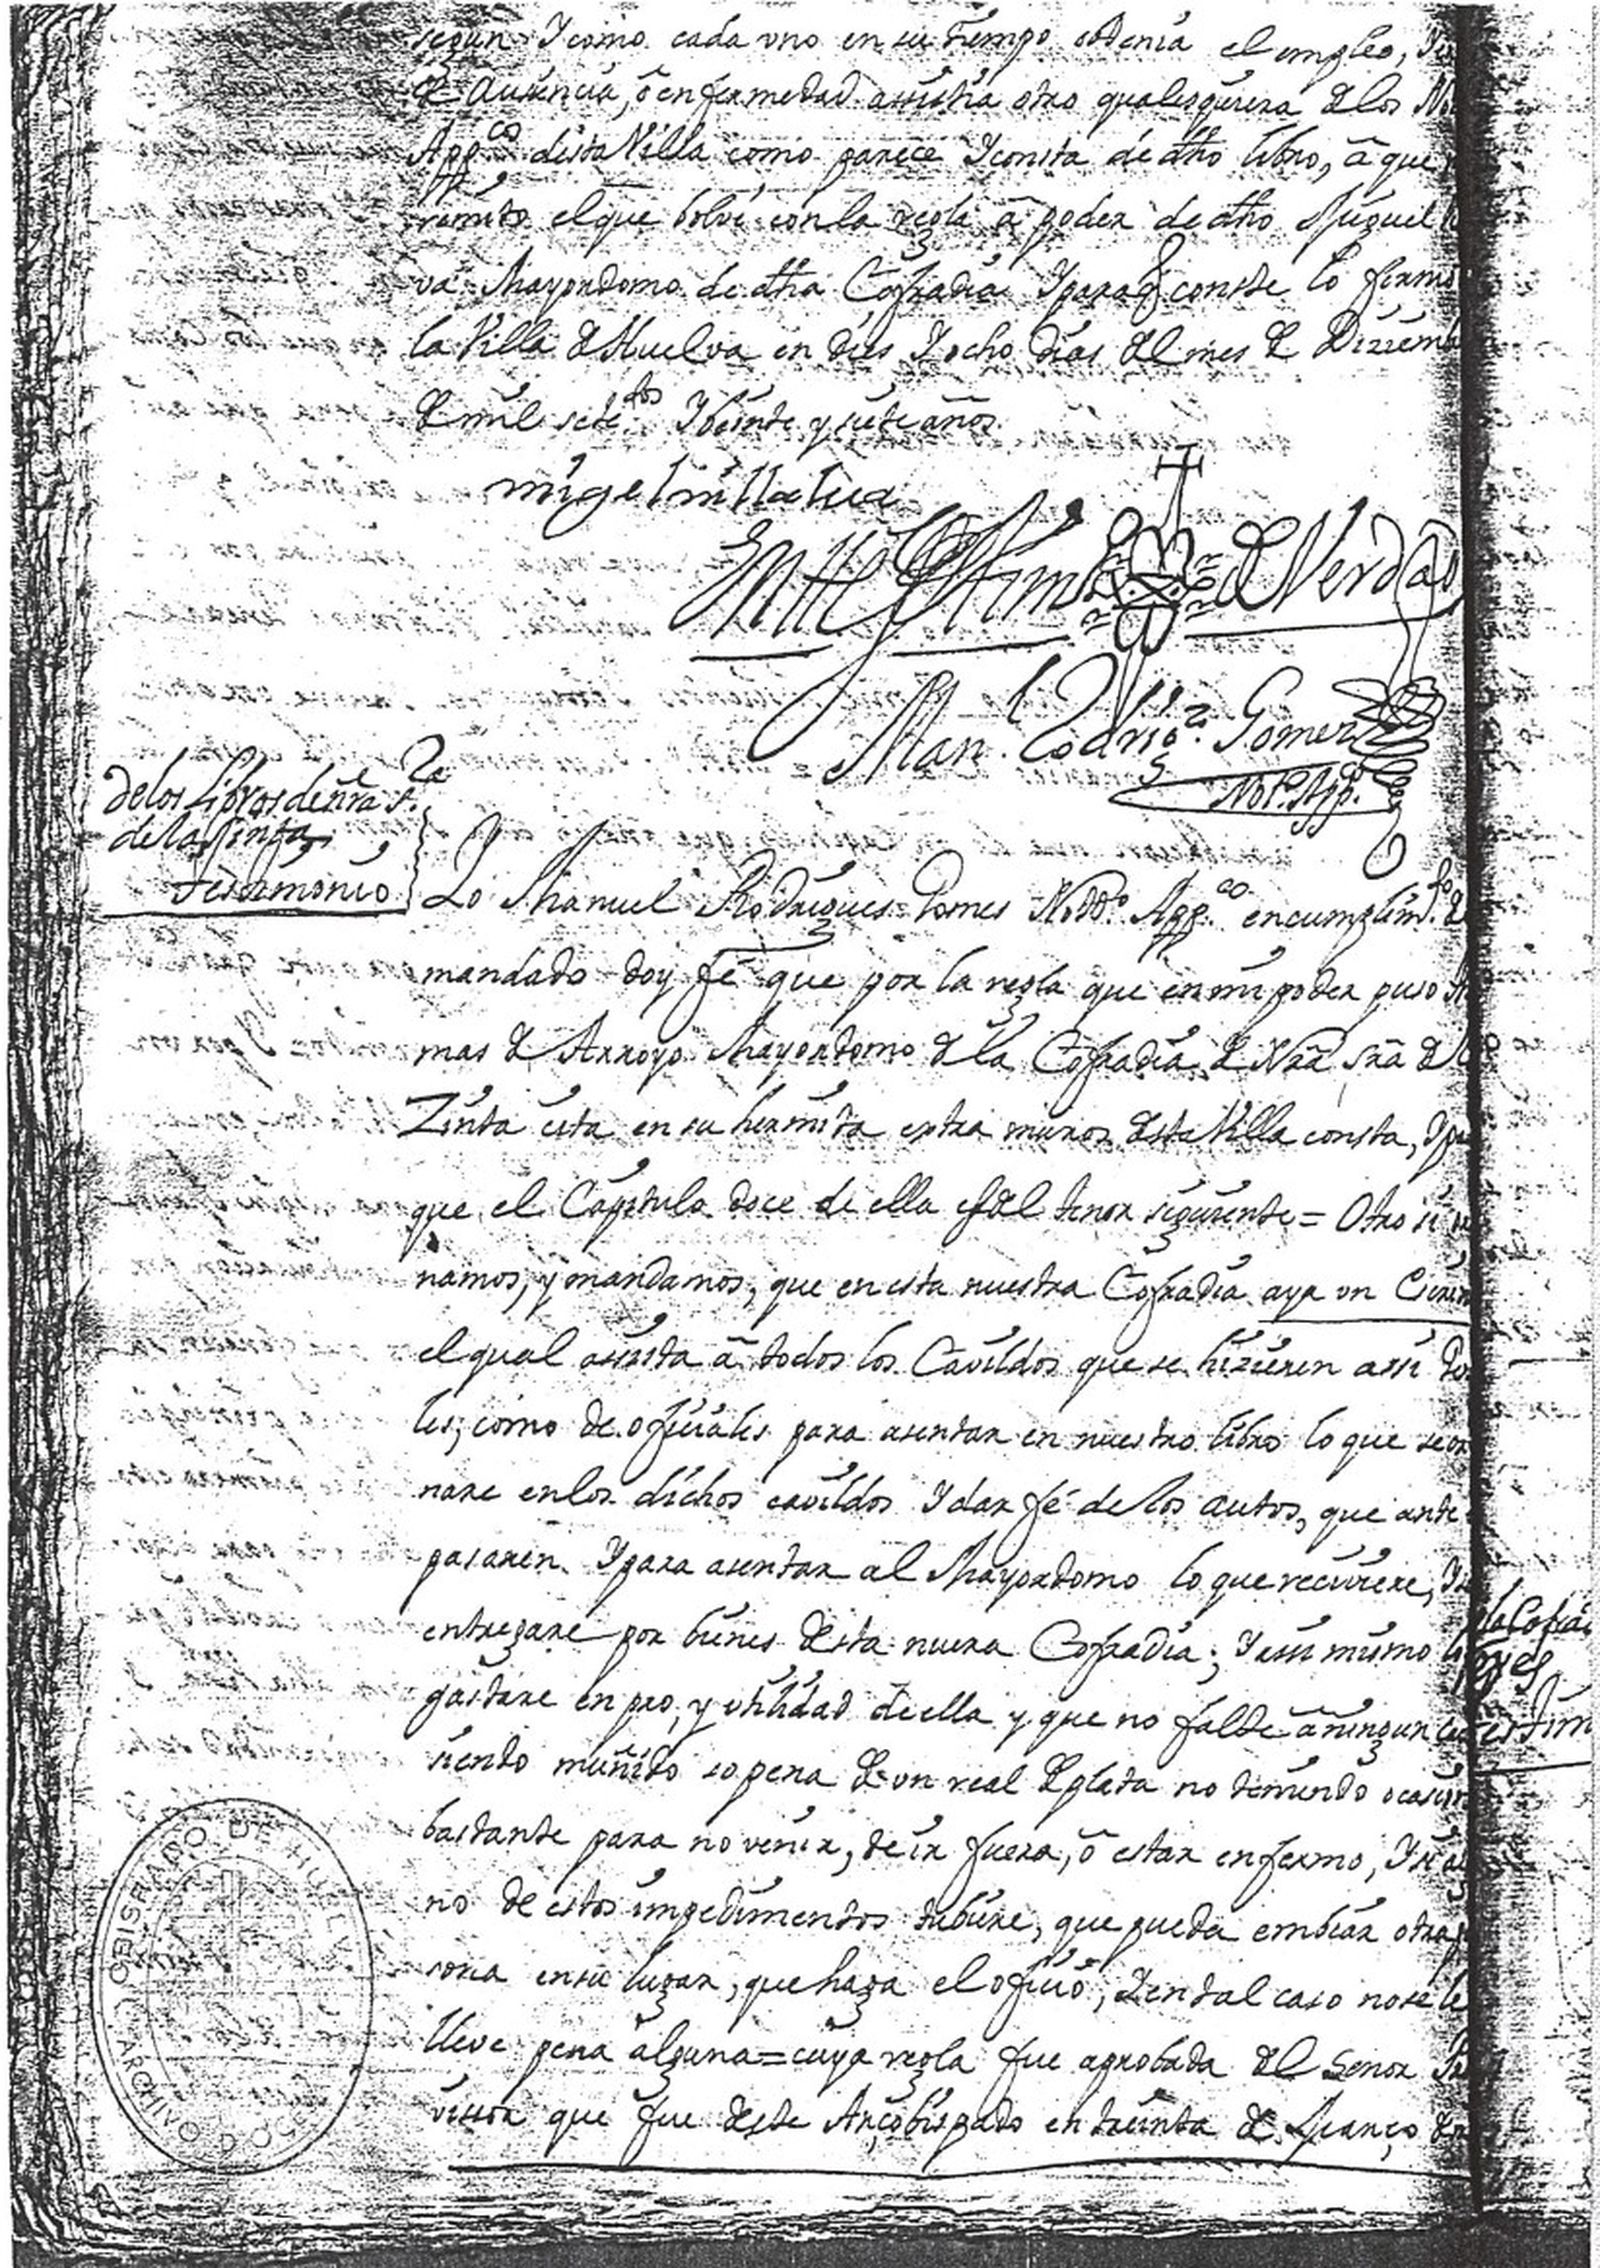 segun Y como cada uno en su tiempo obtenia el empleo, Y
de Ausencia, ô enfermedad asistia otro qualesquiera de los No
App.cos desta Villa como parece Y consta de dho libro, â que
remito el que bolvi con la regla â poder de dho Miguel
va Mayordomo de dha Cofradia Y para q conste lo firmo
la Villa de Huelva en dies Y ocho dias del mes de Diziemb
de mil sete.tos Y beinte y siete años
migel millalua
En tte Stim de Verdad
Man.l Rodrig.z Gomez
Not.o App.
de los Libros de nra S.ra
de la Sinta
Testimonio
Yo Manuel Rodrigues Gomes Nott.o App.co en cumplim.to de
mandado doy fé que por la regla que en mi poder puso
mas de Arroyo Mayordomo de la Cofradia de Nrã Srã de
Zinta cita en su hermita extra muros desta Villa consta, Y pa
que el Capitulo doce de ella es del tenor siguiente = Otro si
namos, y mandamos, que en esta nuestra Cofradia aya un Escriv
el qual asista â todos los Cavildos que se hizieren assi
les, como de oficiales para asentar en nuestro libro lo que se or
nare en los dichos cavildos Y dar fé de los autos, que ante
pasaren. Y para asentar al Mayordomo lo que reciviere, Y
entregare por bienes desta nuestra Cofradia; Y assi mismo lo
gastare en pro, y utilidad de ella y que no falte â ningun ca
siendo muñido so pena de un real de plata no teniendo ocasion
bastante para no venir, de ir fuera, ô estar enfermo, Y si al
no de estos impedimentos tubiere, que pueda embiar otra p
sona en su lugar, que haga el oficio, Y en tal caso no se le
lleve pena alguna = cuya regla fue aprobada del Senor
visor que fue deste Arçobispado en treinta de Março de
OBISPADO DE HUELVA
ARCHIVO